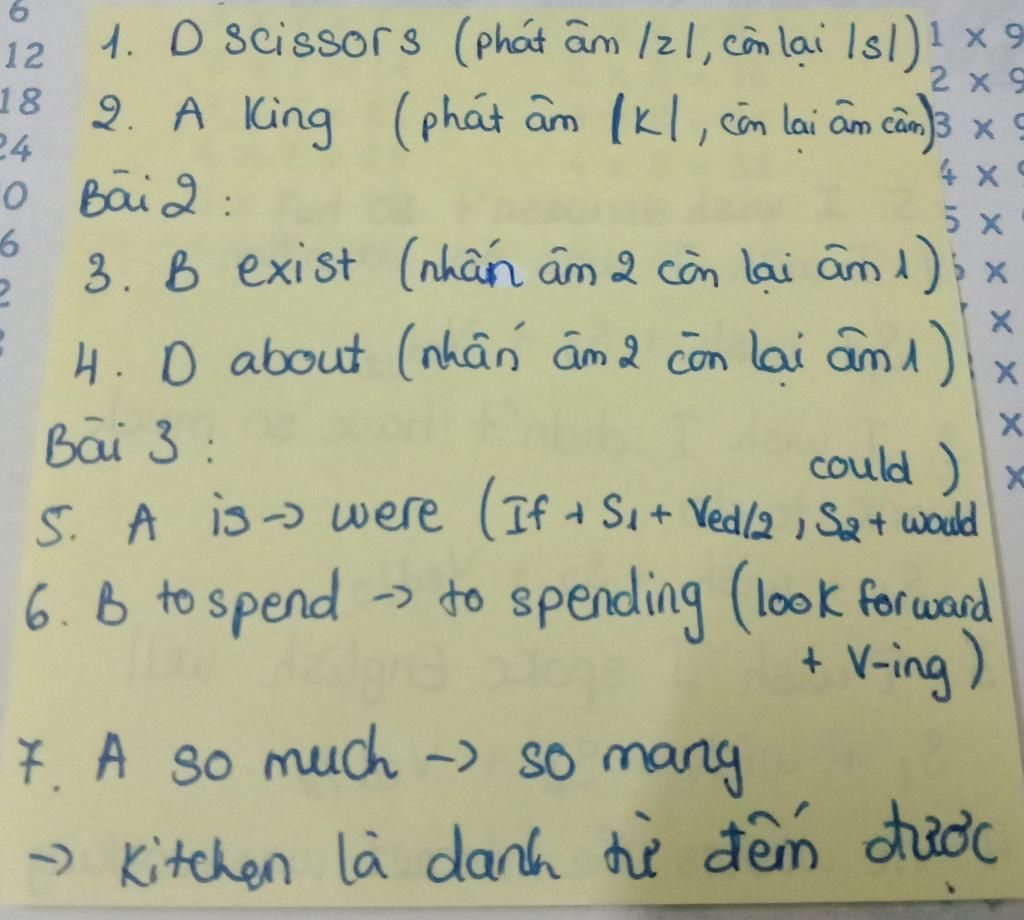 6
12
18
24
0
6
2
1. D scissors (phát âm /z/, còn lại /s/)
2. A King (phát âm /k/, còn lại âm câm)
Bài 2:
3. B exist (nhấn âm 2 còn lại âm 1)
4. D about (nhấn âm 2 còn lại âm 1)
Bài 3:
could)
5. A is → were (If + S1 + Ved/2, S2 + would
6. B to spend → to spending (look forward
+ V-ing)
7. A so much → so many
→ Kitchen là danh từ đếm được
1 x 9
2 x 9
3 x 9
4 x 9
5 x
x
x
x
x
x